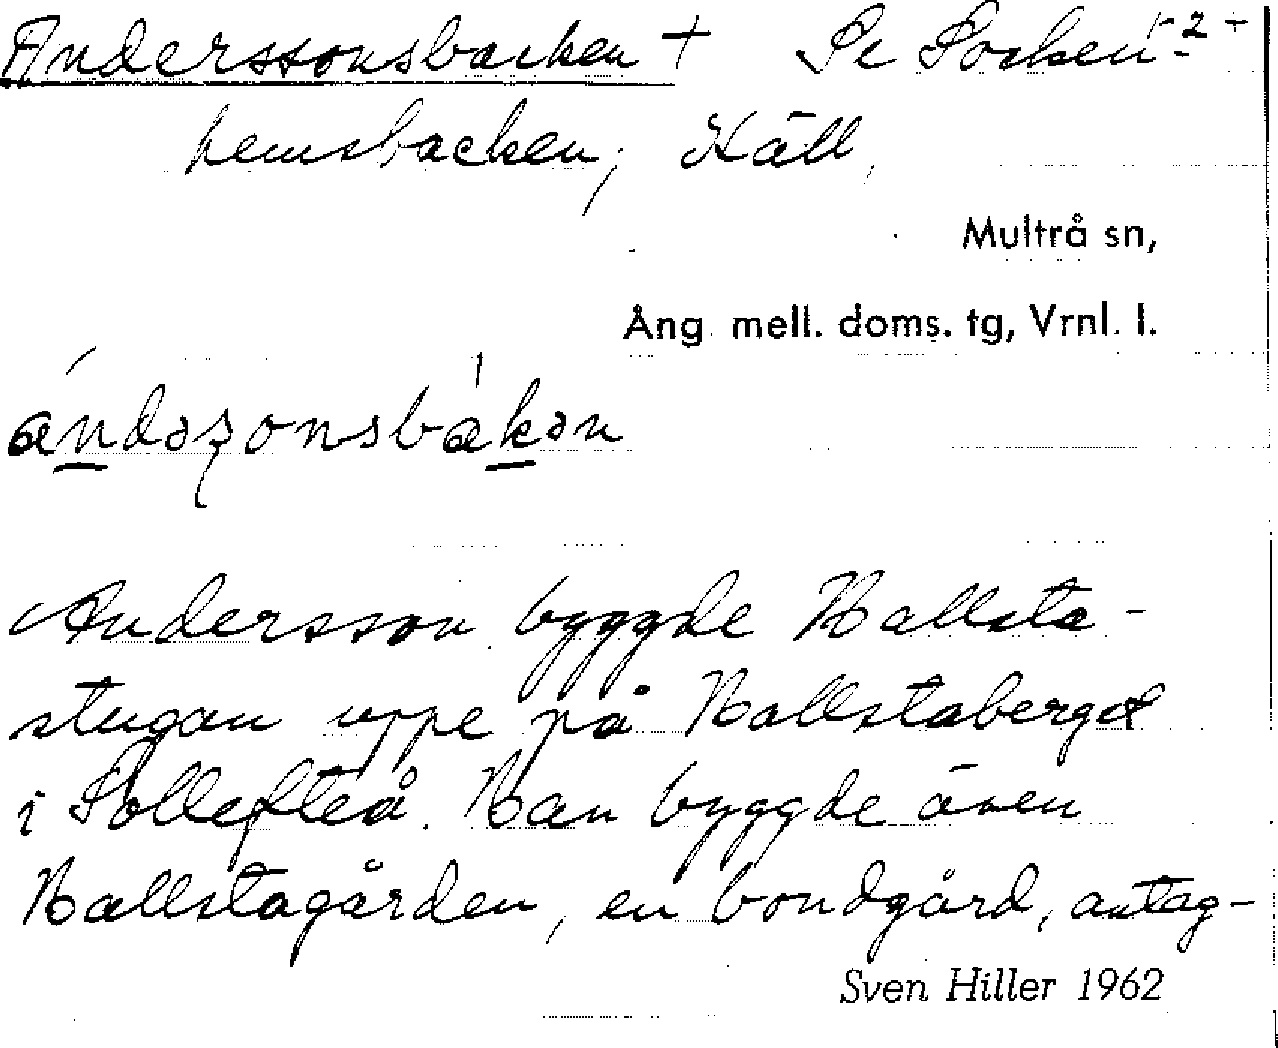 Anderssonsbacken + Se Socken- 1-2 +
hemsbacken, Häll,
Multrå sn,
Ång. mell. doms. tg, Vrnl. l.
Andersson byggde Hallsta-
stugan uppe på Hallstaberget
i Sollefteå. Han byggde även
Hallstagården, en bondgård, antag-
Sven Hiller 1962